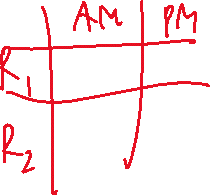 AM PM
R1
R2